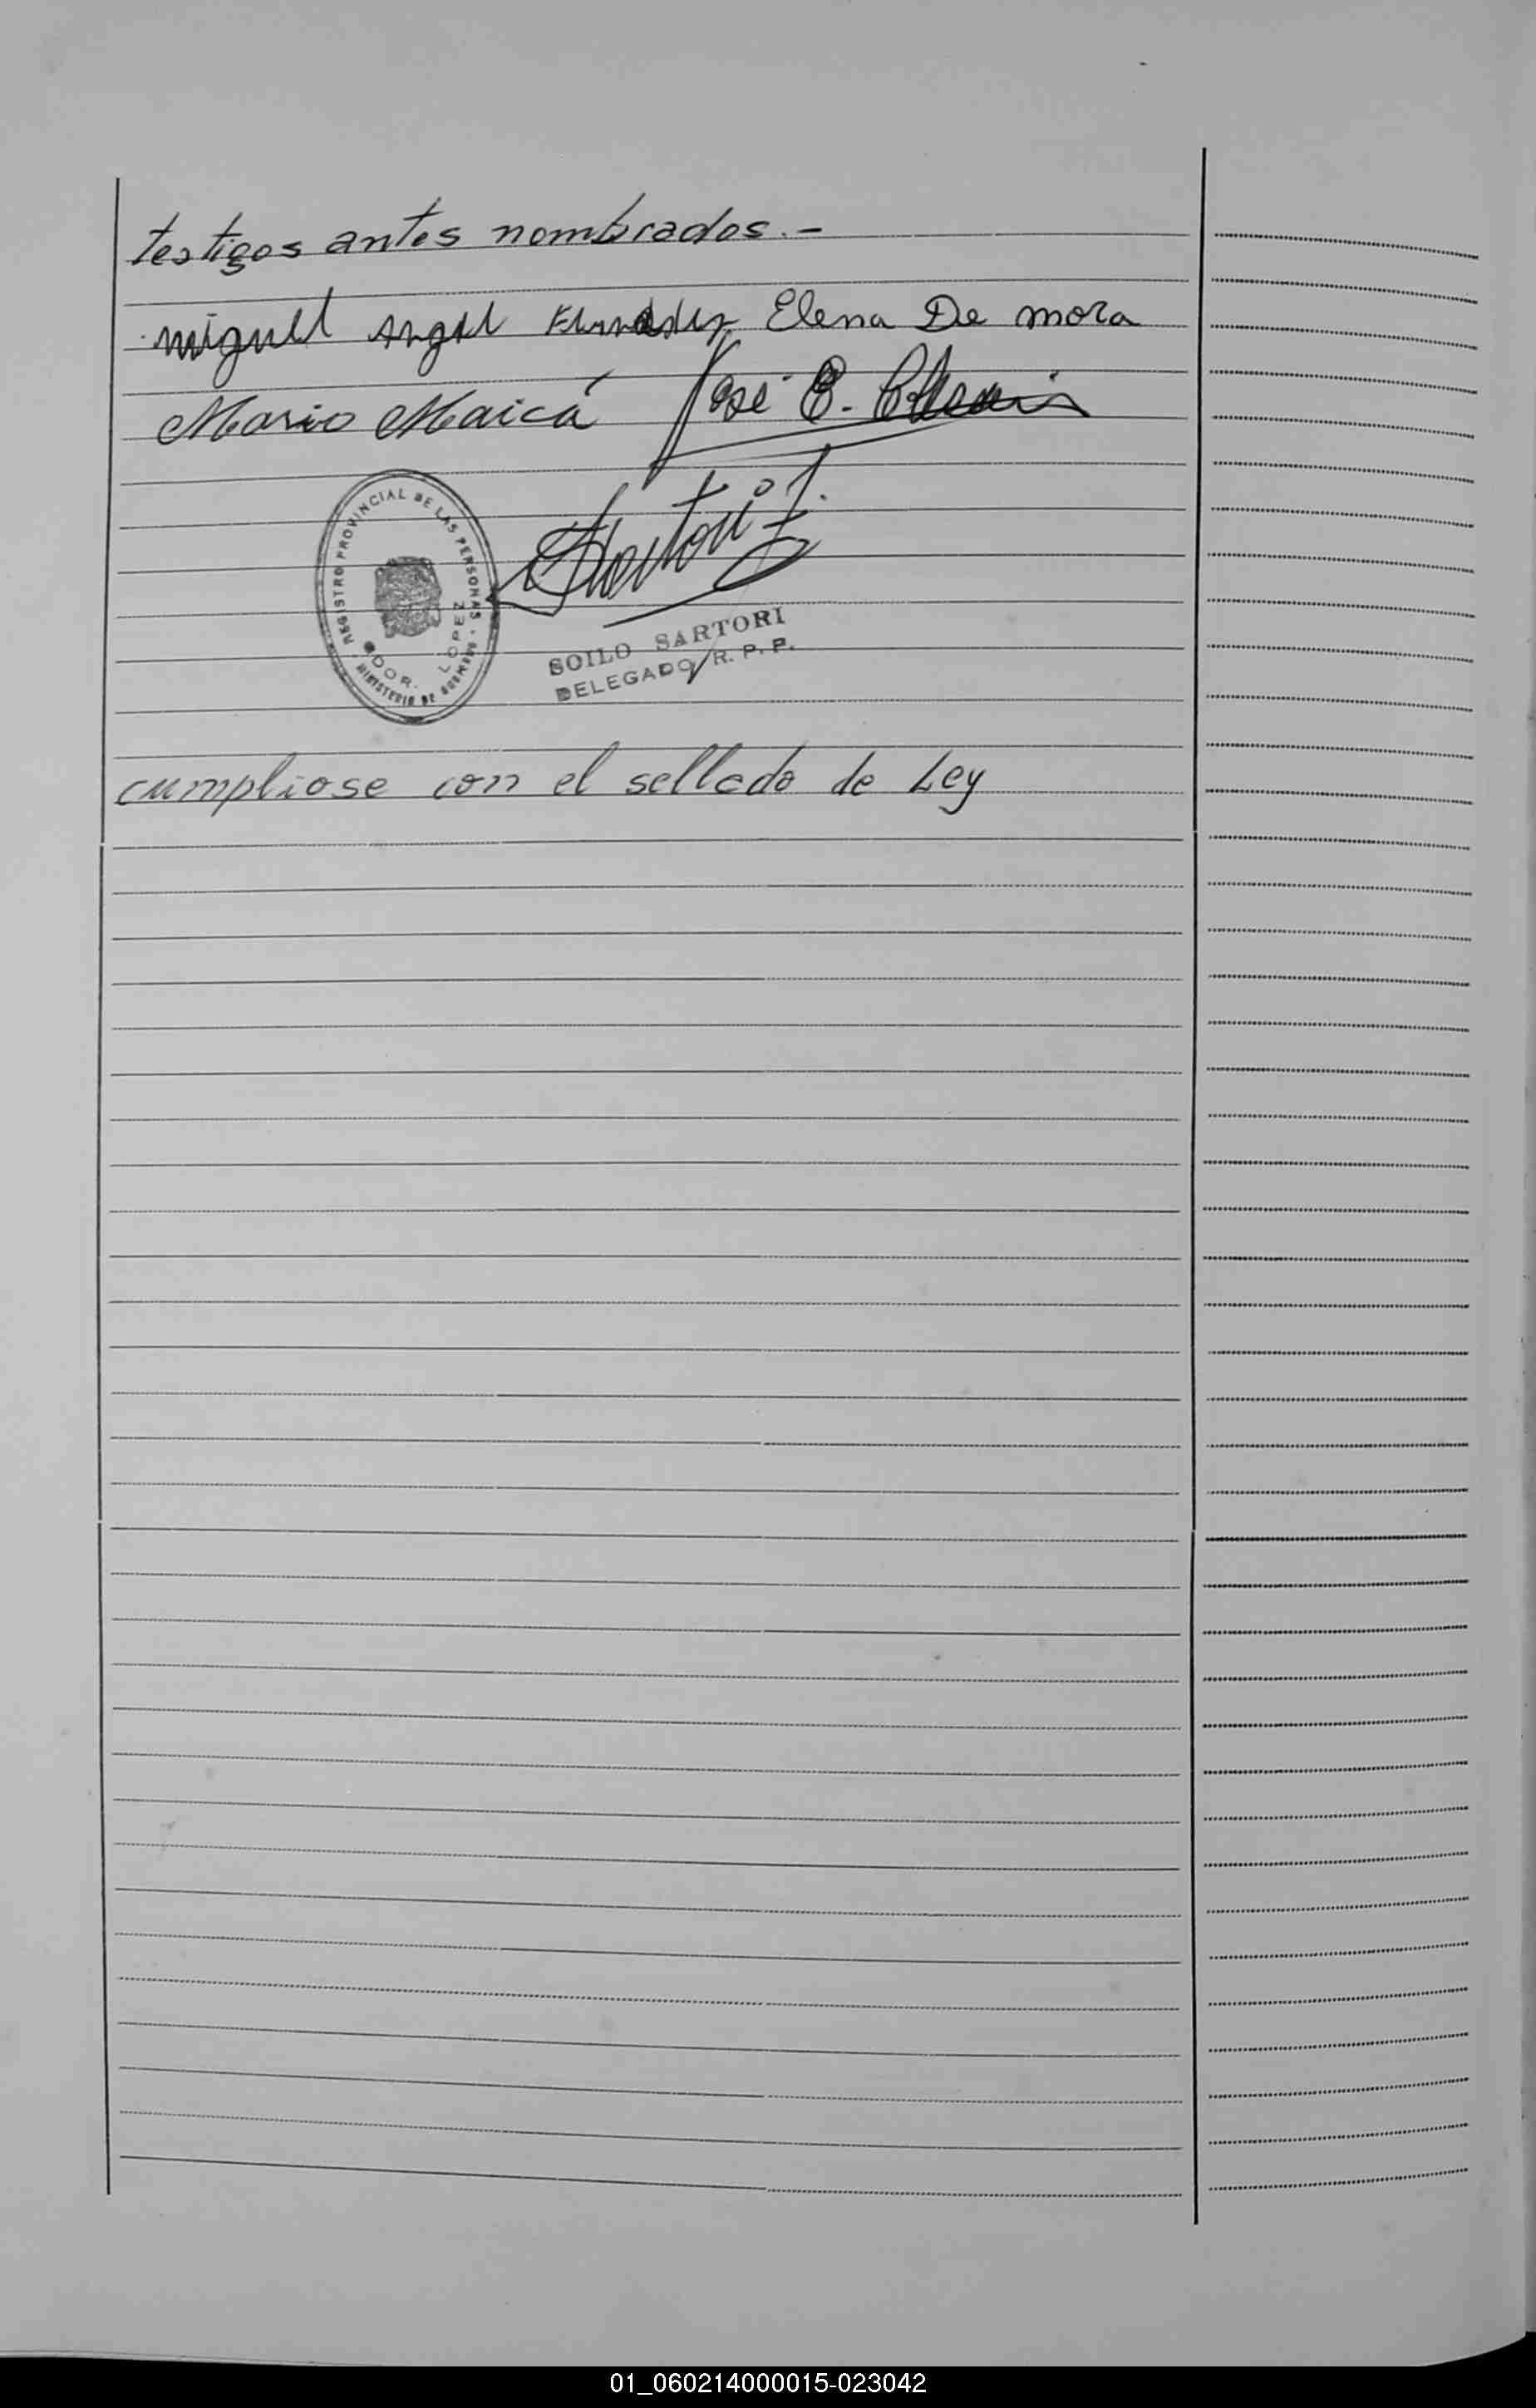 testigos antes nombrados.-
Miguel Angel Elena De mora
Mario Maicá José E.
REGISTRO PROVINCIAL DE LAS PERSONAS - MINISTERIO DE GOBIERNO
GDOR. LOPEZ
Sartori
SOILO SARTORI
DELEGADO R. P. P.
cumpliose con el sellado de Ley
01_060214000015-023042